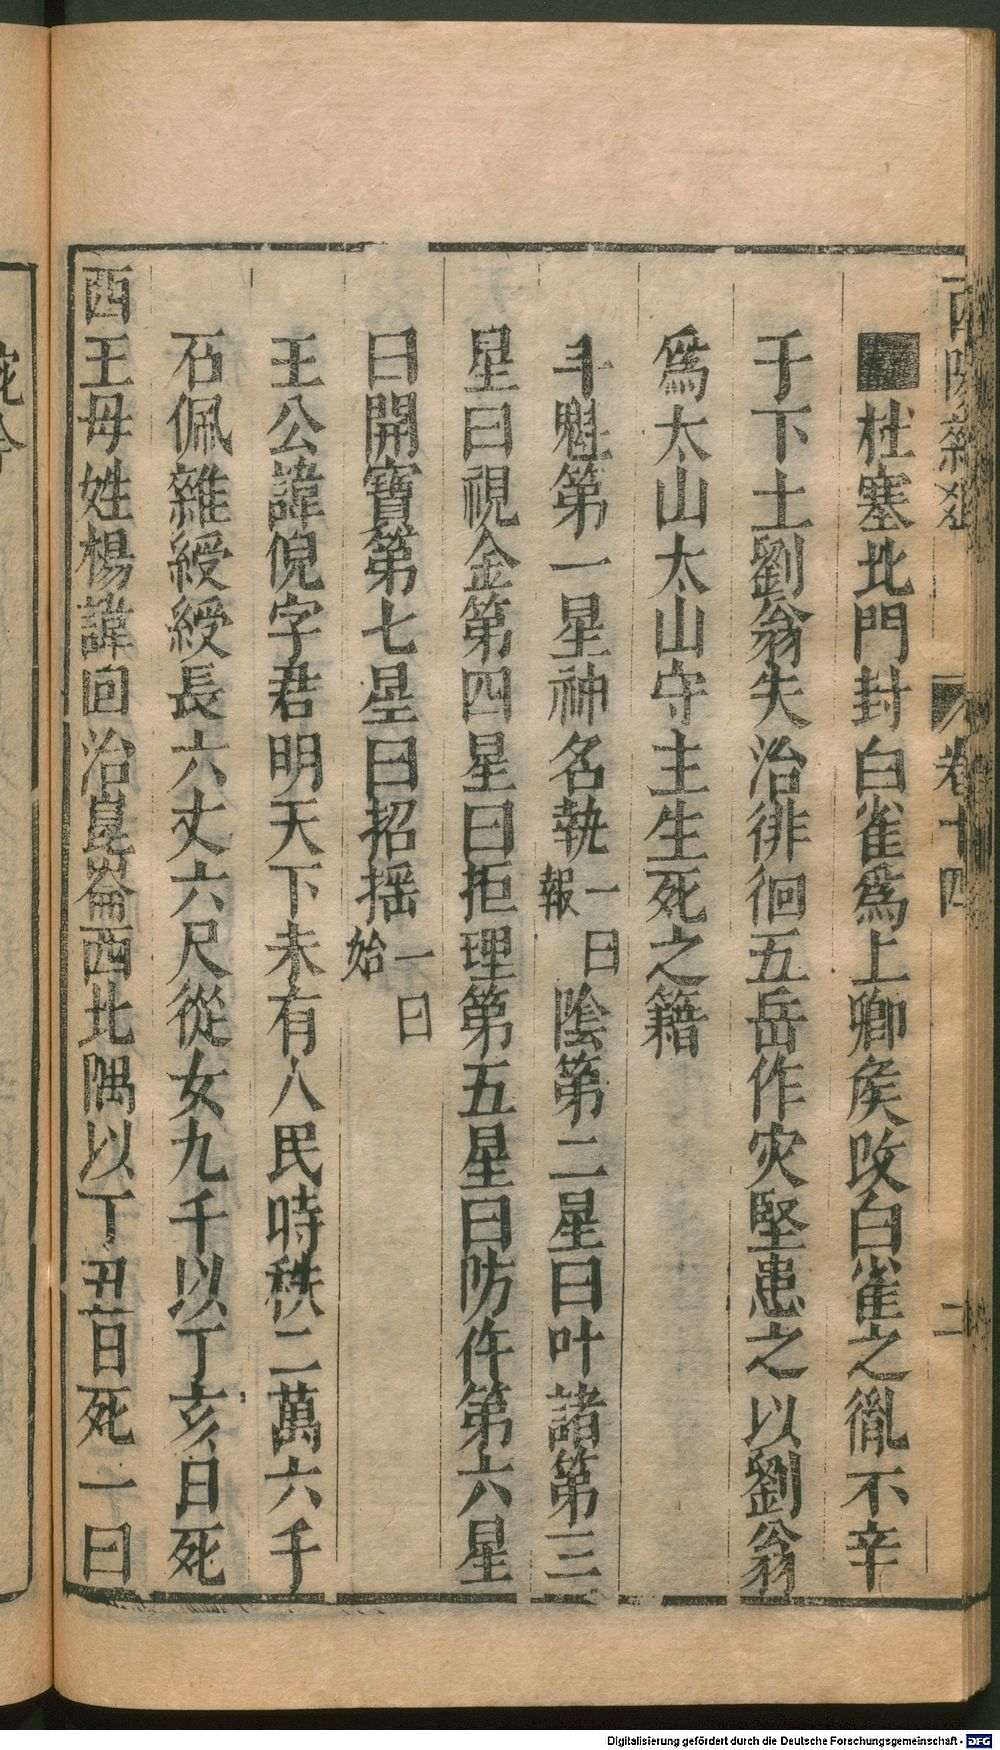 酉陽雜俎 卷十四 二
■杜塞北門封白雀爲上卿矦改白雀之胤不辛
于下土劉翁失治徘徊五岳作灾堅患之以劉翁
爲太山太山守主生死之籍
斗魁第一星神名執一曰報陰第二星曰叶諸第三
星曰視金第四星曰拒理第五星曰防仵第六星
曰開寶第七星曰招搖一曰始
王公諱倪字君明天下未有人民時秩二萬六千
石佩雜綬綬長六丈六尺從女九千以丁亥日死
西王母姓楊諱回治崑崙西北隅以丁丑日死一曰
Digitalisierung gefördert durch die Deutsche Forschungsgemeinschaft - DFG